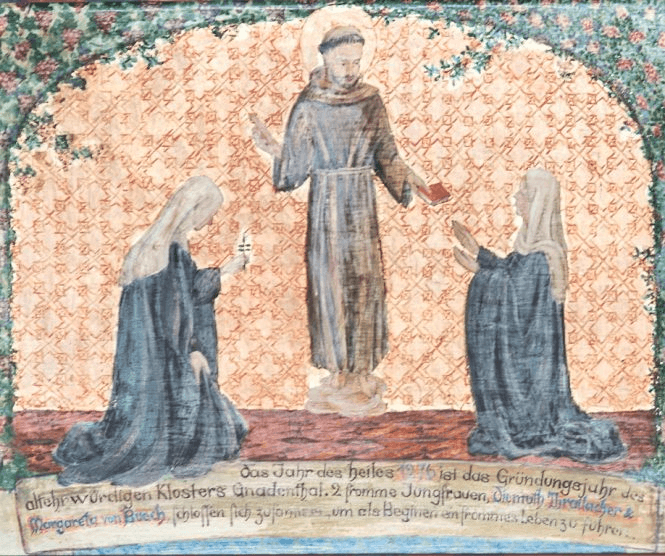 das Jahr des heiles 1276 ist das Gründungsjahr des
altehrwürdigen Klosters Gnadenthal. 2 fromme Jungfrauen, Diemuth Thrailacher &
Margareta von Buech, schlossen sich zusammen, um als Beginen ein frommes Leben zu führen...